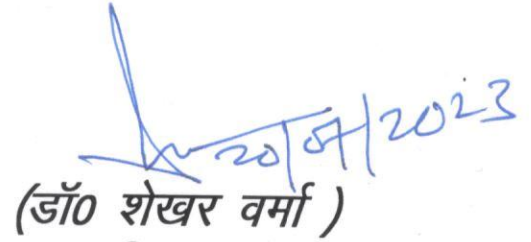 20/07/2023
(डॉ0 शेखर वर्मा )